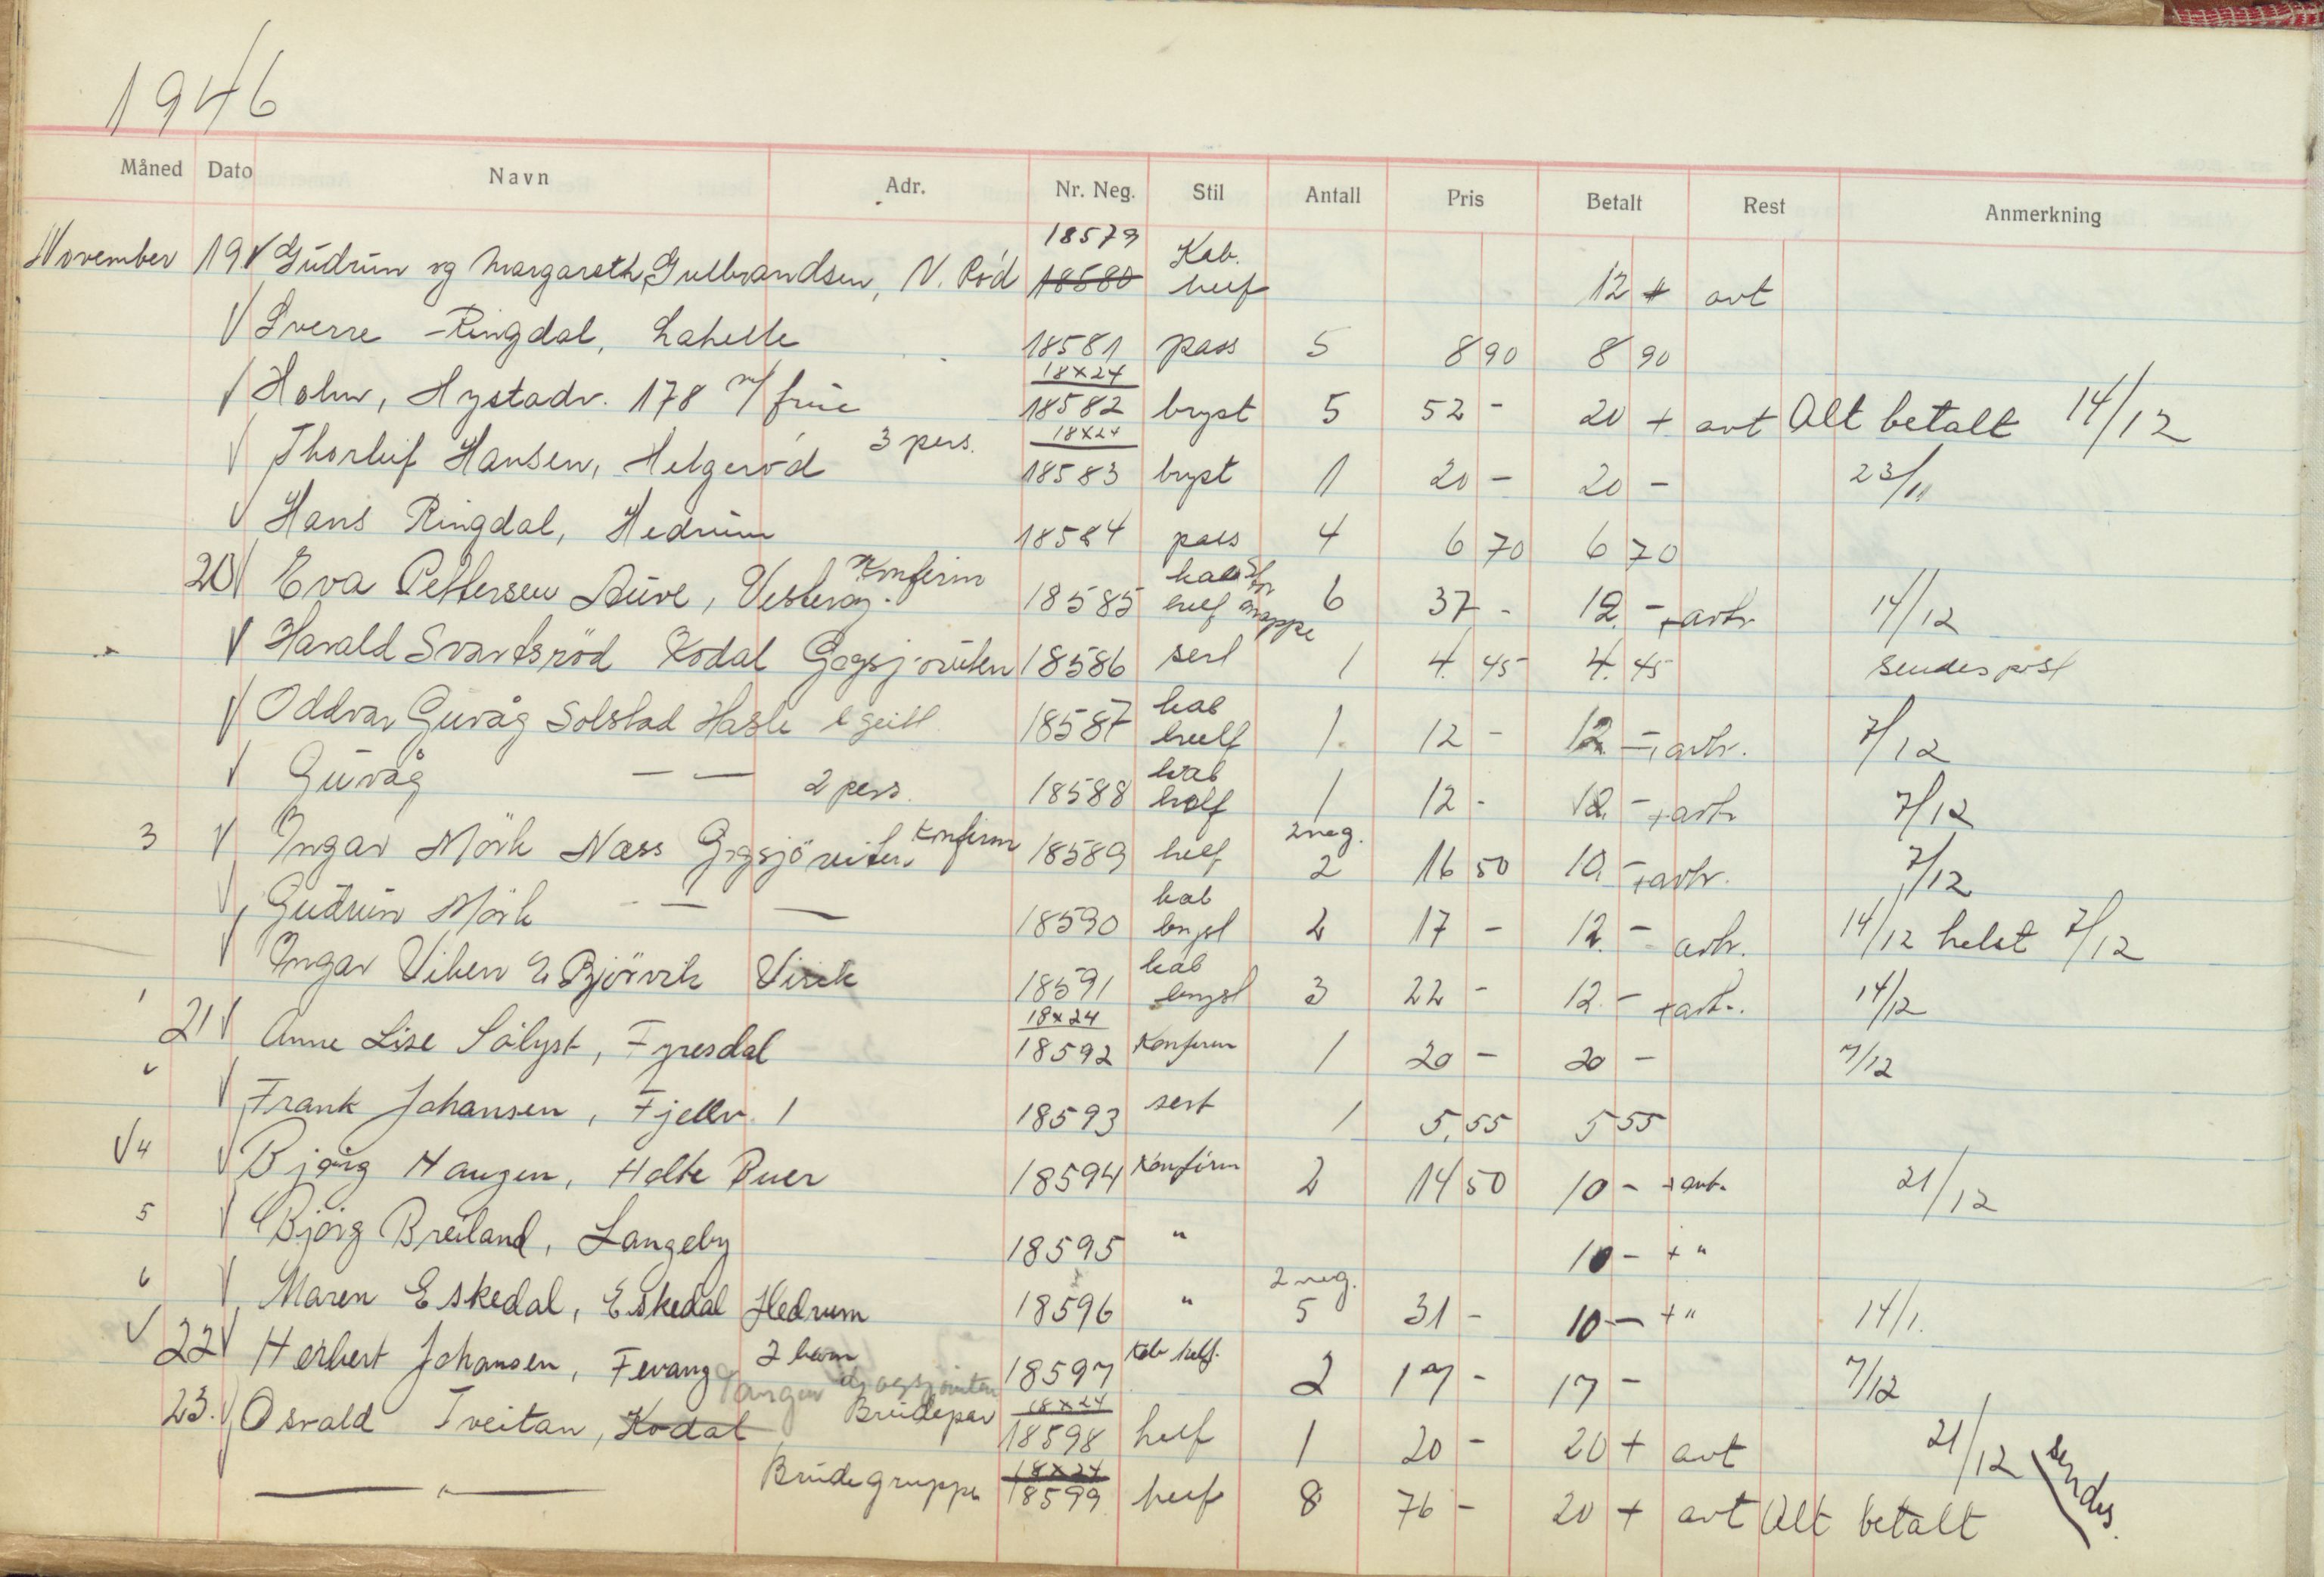 1946
Måned Dato Navn Adr. Nr. Neg. Stil Antall Pris Betalt Rest Anmerkning
18579 Kab.
November 19 V Gudrun og Margareth Gulbrandsen, N. Röd 18580 helf 12 + avt
V Sverre Ringdal, Lahelle 18581 pass 5 8 90 8 90
18x24
V Holm, Hystadv. 178 m/ frue 18582 bryst 5 52 - 20 + avt Alt betalt 14/12
18x24
V Thorleif Hansen, Helgeröd 3 pers. 18583 bryst 1 20 - 20 - 23/11
V Hans Ringdal, Hedrum 18584 pass 4 6 70 6 70
20 V Eva Pettersen Buve, Vesterøy. Konfirm 18585 kab helf mappe 6 37 - 12. - + avtr 14/12
V Harald Svartsröd Kodal Gogsjöruten 18586 sert 1 4. 45 4. 45 sendes post
V Oddvar Guvåg Solstad Hasle 18587 kab helf 1. 12 - 12 - + avtr. 7/12
V Guvåg — — 2 pers. 18588 kab helf 1 12 - 12. - + avtr 7/12
3 V Ingar Mörk Næss Gogsjöruten Konfirm 18589 helf 2 neg. 2 16 50 10. - + avtr. 7/12
V Gudrun Mörk - — — 18590 kab bryst 2 17 - 12. - avtr. 14/12 helst 7/12
V Ingar Viken E Björvik Virik 18591 kab bryst 3 22 - 12. - + avtr. 14/12
18x24
21 V Anne Lise Sölyst, Fyresdal 18592 Konfirm 1 20 - 20 - 7/12
V Frank Johansen, Fjellv. 1 18593 sert 1 5. 55 5 55
V 4 V Bjørg Haugen, Holte Buer 18594 Konfirm 2 14 50 10 - + avt. 21/12
5 V Bjørg Breiland, Langeby 18595 " 10 - + "
6 V Maren Eskedal, Eskedal Hedrum 18596 " 2 neg. 5 31 - 10 - + " 14/1.
V 22 V Herbert Johansen, Fevang 2 barn 18597 Kab helf. 2 17 - 17 - 7/12
Gogsjöruten 18x24
23. V Osvald Tveitan, Kodal Brudepar 18598 helf 1 20 - 20 + avt 21/12 sendes.
18x24
— " — Brudegruppe 18599 helf 8 76 - 20 + avt Alt betalt